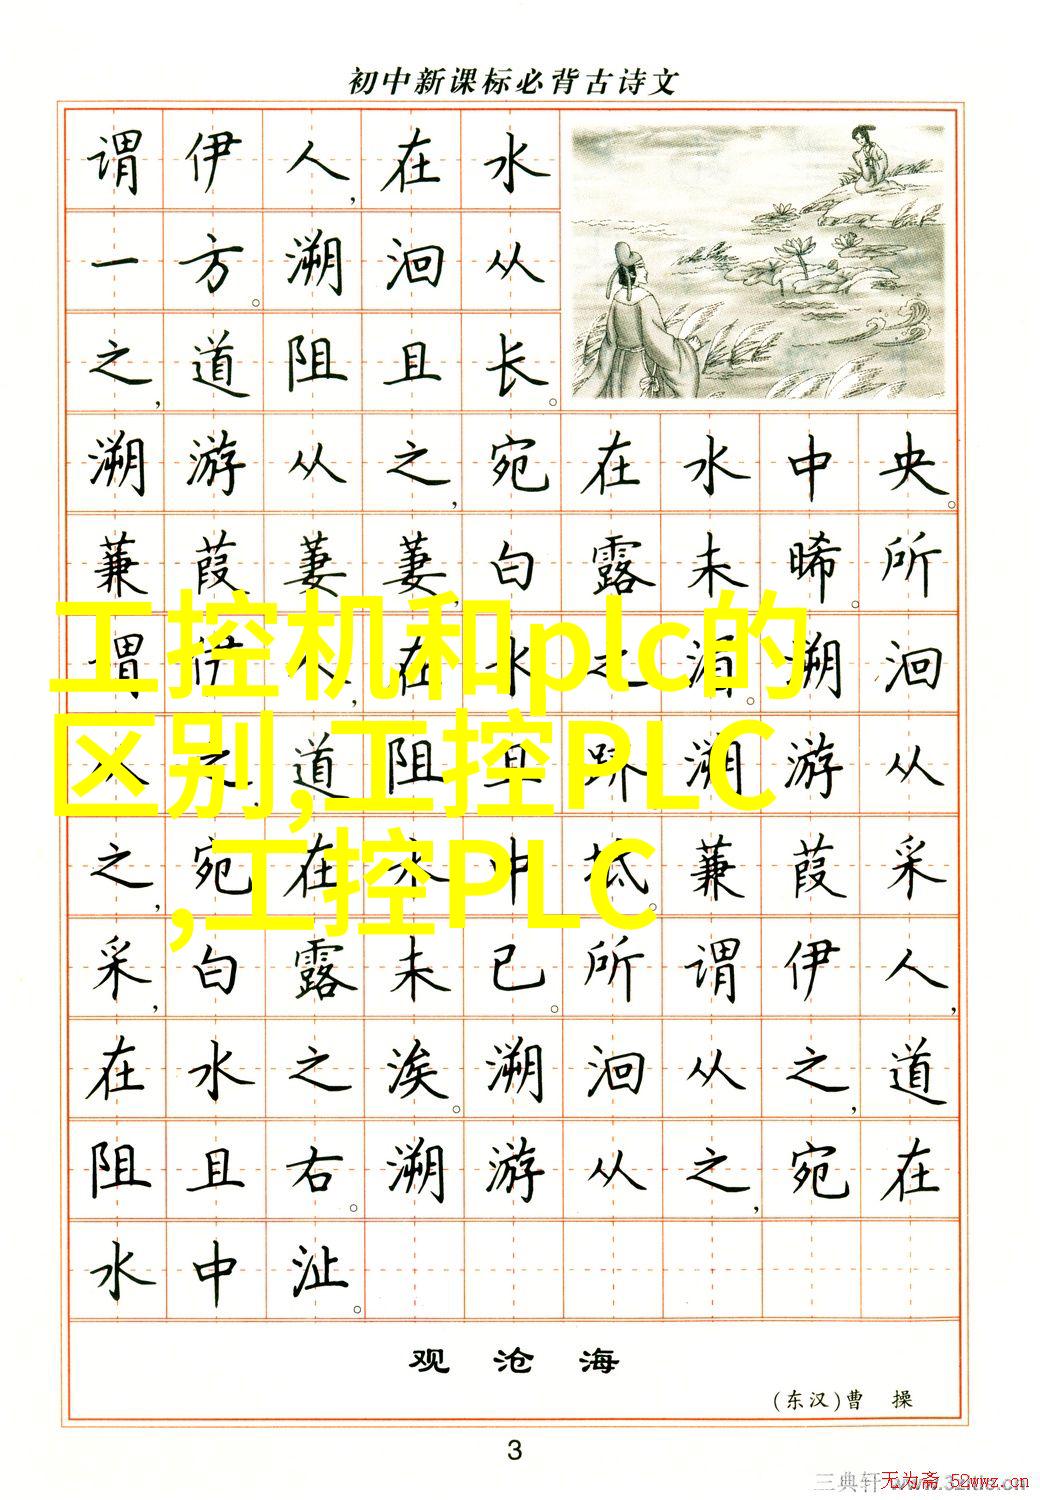 初中新课标必背古诗文
谓伊人，在水
一方。溯洄从
之，道阻且长。
溯游从之，宛在水中央。
蒹葭萋萋，白露未晞。所
谓伊人，在水之湄。溯洄
从之，道阻且跻。溯游从
之，宛在水中坻。蒹葭采
采，白露未已。所谓伊人，
在水之涘。溯洄从之，道
阻且右。溯游从之，宛在
水中沚。
工控机和plc的
区别,工控PLC
,工控PLC
观沧海
(东汉)曹 操
3
三典轩
无为斋 52wwz.cn